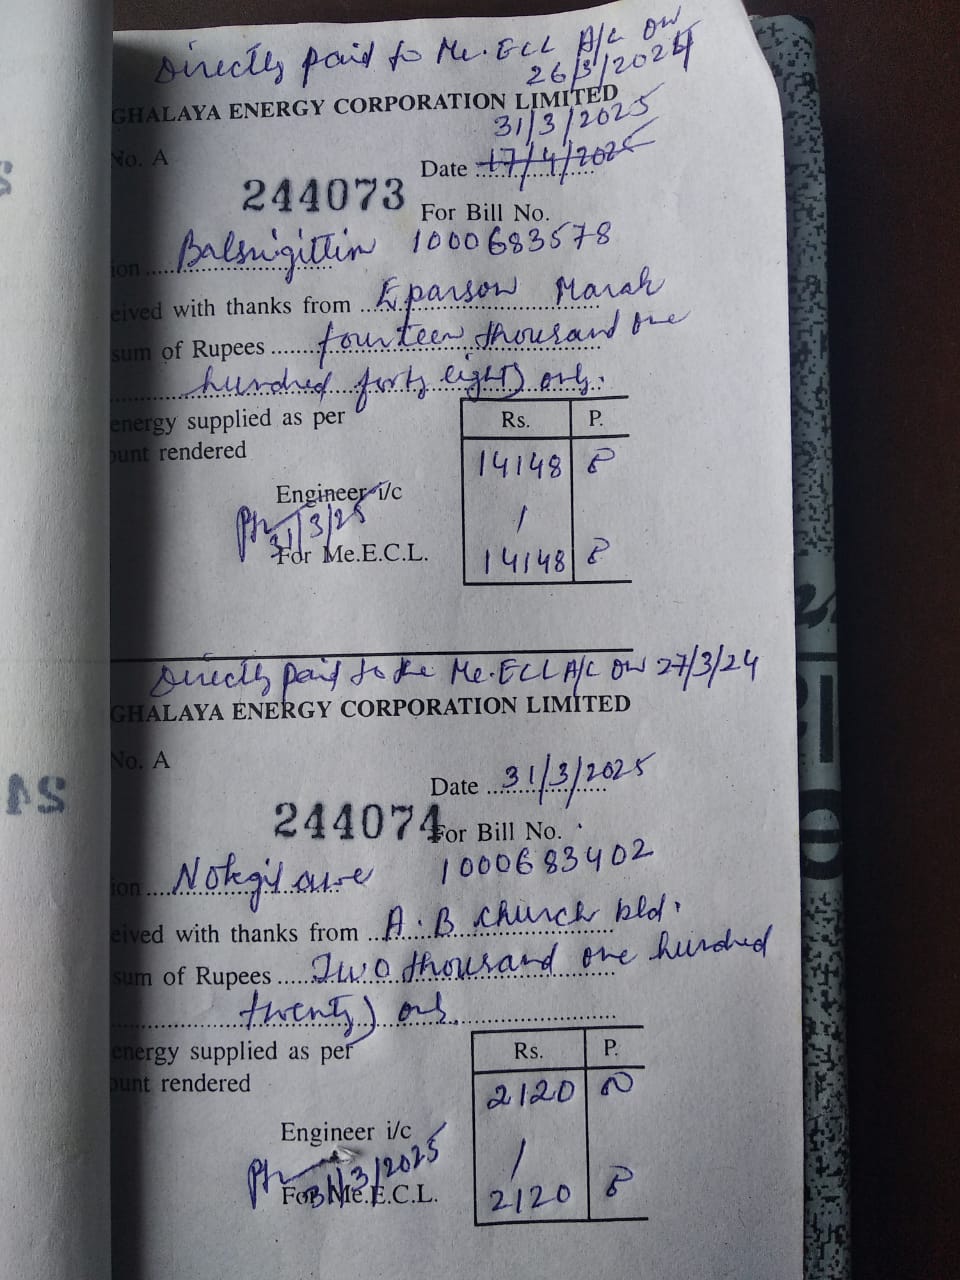 Directly paid to Me.ECL A/C on
26/3/2024
GHALAYA ENERGY CORPORATION LIMITED
31/3/2025
No. A
Date 17/4/2025
244073
For Bill No.
ion Balsrigittim 1000683578
eived with thanks from Eparson Marak
sum of Rupees fourteen thousand one
hundred forty eight) only.
energy supplied as per
ount rendered
Rs. P.
14148
14148
Engineer i/c
31/3/25
For Me.E.C.L.
Directly paid to the Me.ECL A/C on 27/3/24
GHALAYA ENERGY CORPORATION LIMITED
No. A
Date 31/3/2025
244074
For Bill No.
ion 1000683402
eived with thanks from A.B church bld.
sum of Rupees Two thousand one hundred
twenty) only.
energy supplied as per
ount rendered
Rs. P.
2120
2120
Engineer i/c
31/3/2025
For Me.E.C.L.